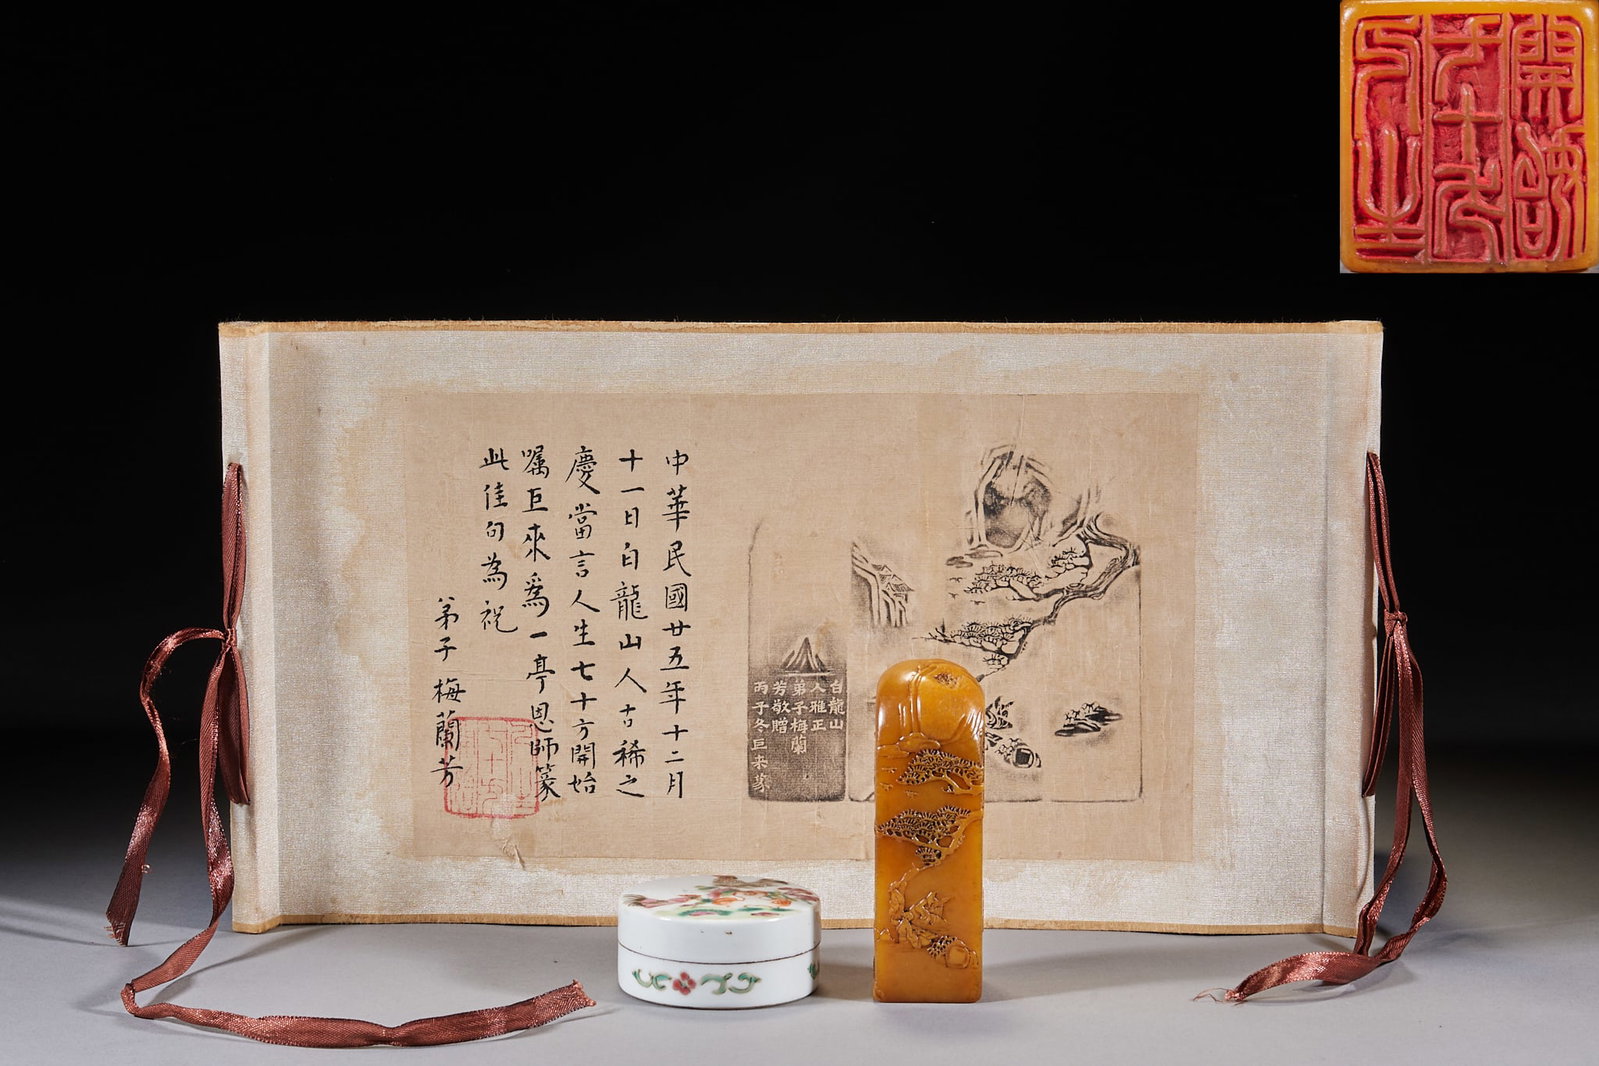 中華民國廿五年十二月
十一日白龍山人古稀之
慶當言人生七十方開始
囑巨來爲一亭恩師篆
此佳句為祝
弟子梅蘭芳
白龍山
人雅正
弟子梅蘭
芳敬贈
丙子冬巨来篆